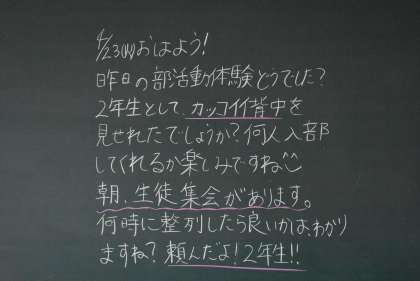 4/23(火)おはよう!
昨日の部活動体験どうでした?
2年生として、カッコイイ背中を
見せれたでしょうか?何人入部
してくれるか楽しみですね
朝、生徒集会があります。
何時に整列したら良いかは、わかり
ますね?頼んだよ!2年生!!